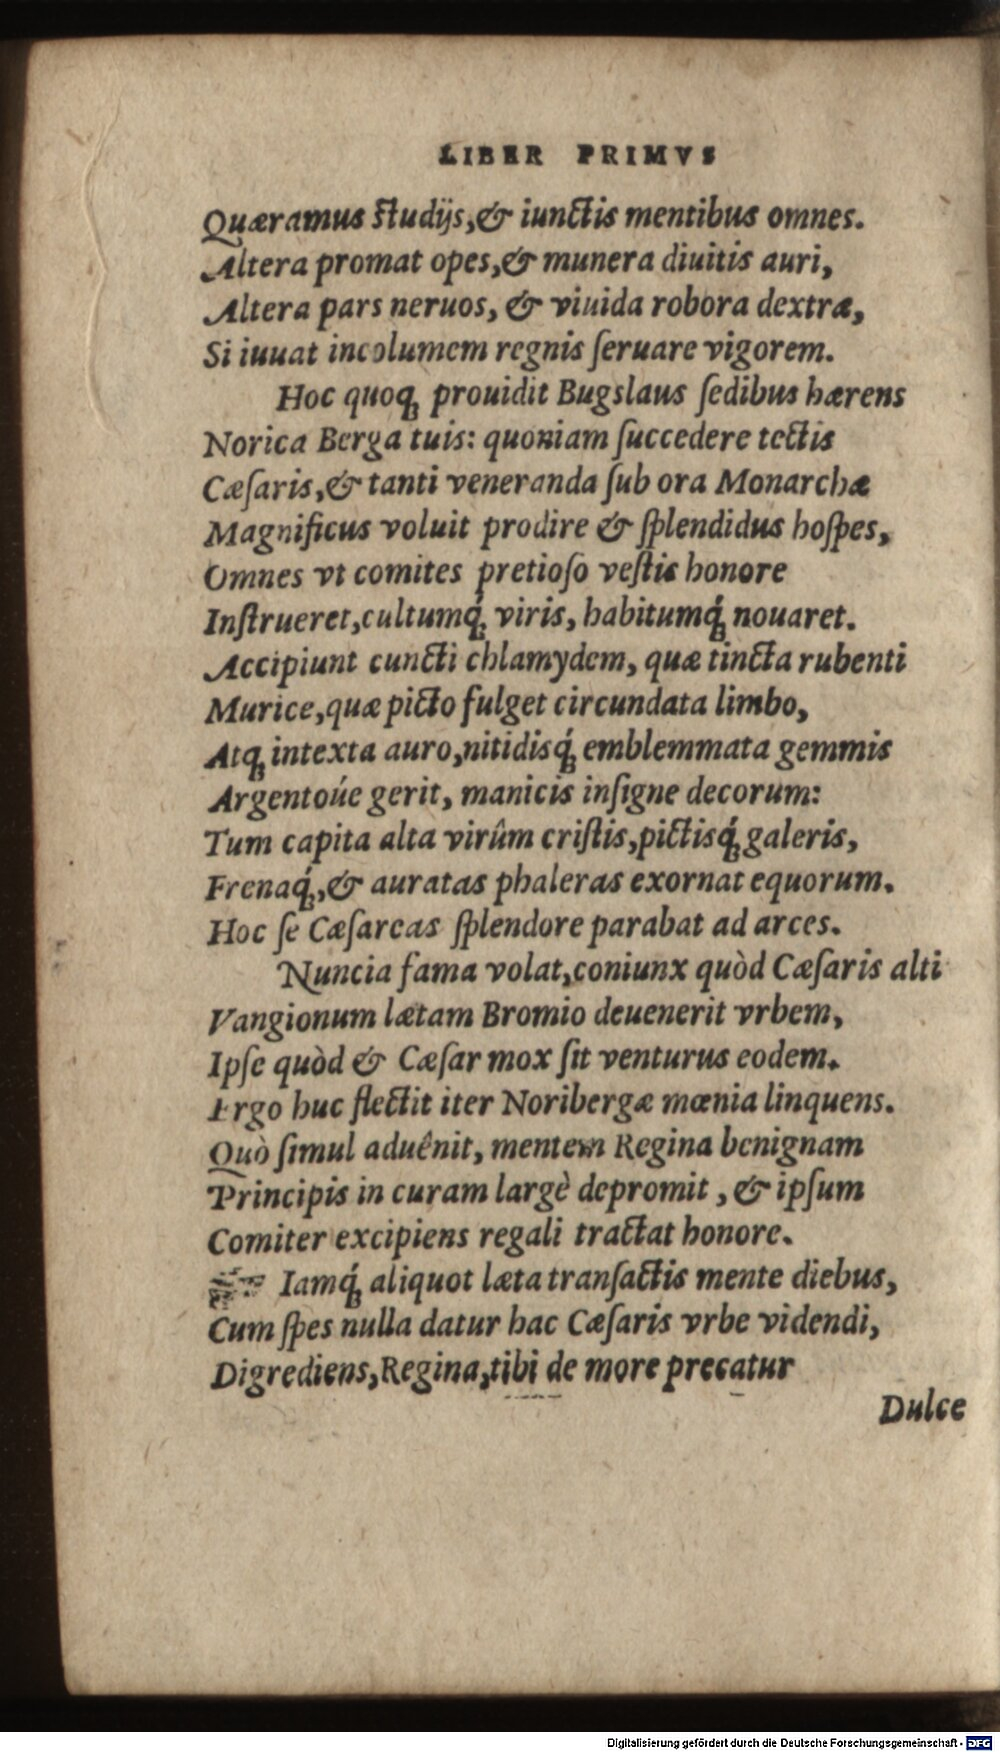 LIBER PRIMVS
Quæramus ſtudijs,& iunctis mentibus omnes.
Altera promat opes,& munera diuitis auri,
Altera pars neruos, & viuida robora dextræ,
Si iuuat incolumem regnis ſeruare vigorem.
Hoc quoq; prouidit Bugslaus ſedibus hærens
Norica Berga tuis: quoniam ſuccedere tectis
Cæſaris,& tanti veneranda ſub ora Monarchæ
Magnificus voluit prodire & ſplendidus hoſpes,
Omnes vt comites pretioſo veſtis honore
Inſtrueret,cultumq́; viris, habitumq́; nouaret.
Accipiunt cuncti chlamydem, quæ tincta rubenti
Murice,quæ picto fulget circundata limbo,
Atq; intexta auro,nitidisq́; emblemmata gemmis
Argentoúe gerit, manicis inſigne decorum:
Tum capita alta virûm criſtis,pictisq́; galeris,
Frenaq́;,& auratas phaleras exornat equorum.
Hoc ſe Cæſareas ſplendore parabat ad arces.
Nuncia fama volat,coniunx quòd Cæſaris alti
Vangionum lætam Bromio deuenerit vrbem,
Ipſe quòd & Cæſar mox ſit venturus eodem.
Ergo huc flectit iter Noribergæ mœnia linquens.
Quò ſimul aduênit, mentem Regina benignam
Principis in curam largè depromit , & ipſum
Comiter excipiens regali tractat honore.
Iamq́; aliquot læta tranſactis mente diebus,
Cum ſpes nulla datur hac Cæſaris vrbe videndi,
Digrediens,Regina,tibi de more precatur
Dulce
Digitalisierung gefördert durch die Deutsche Forschungsgemeinschaft - DFG